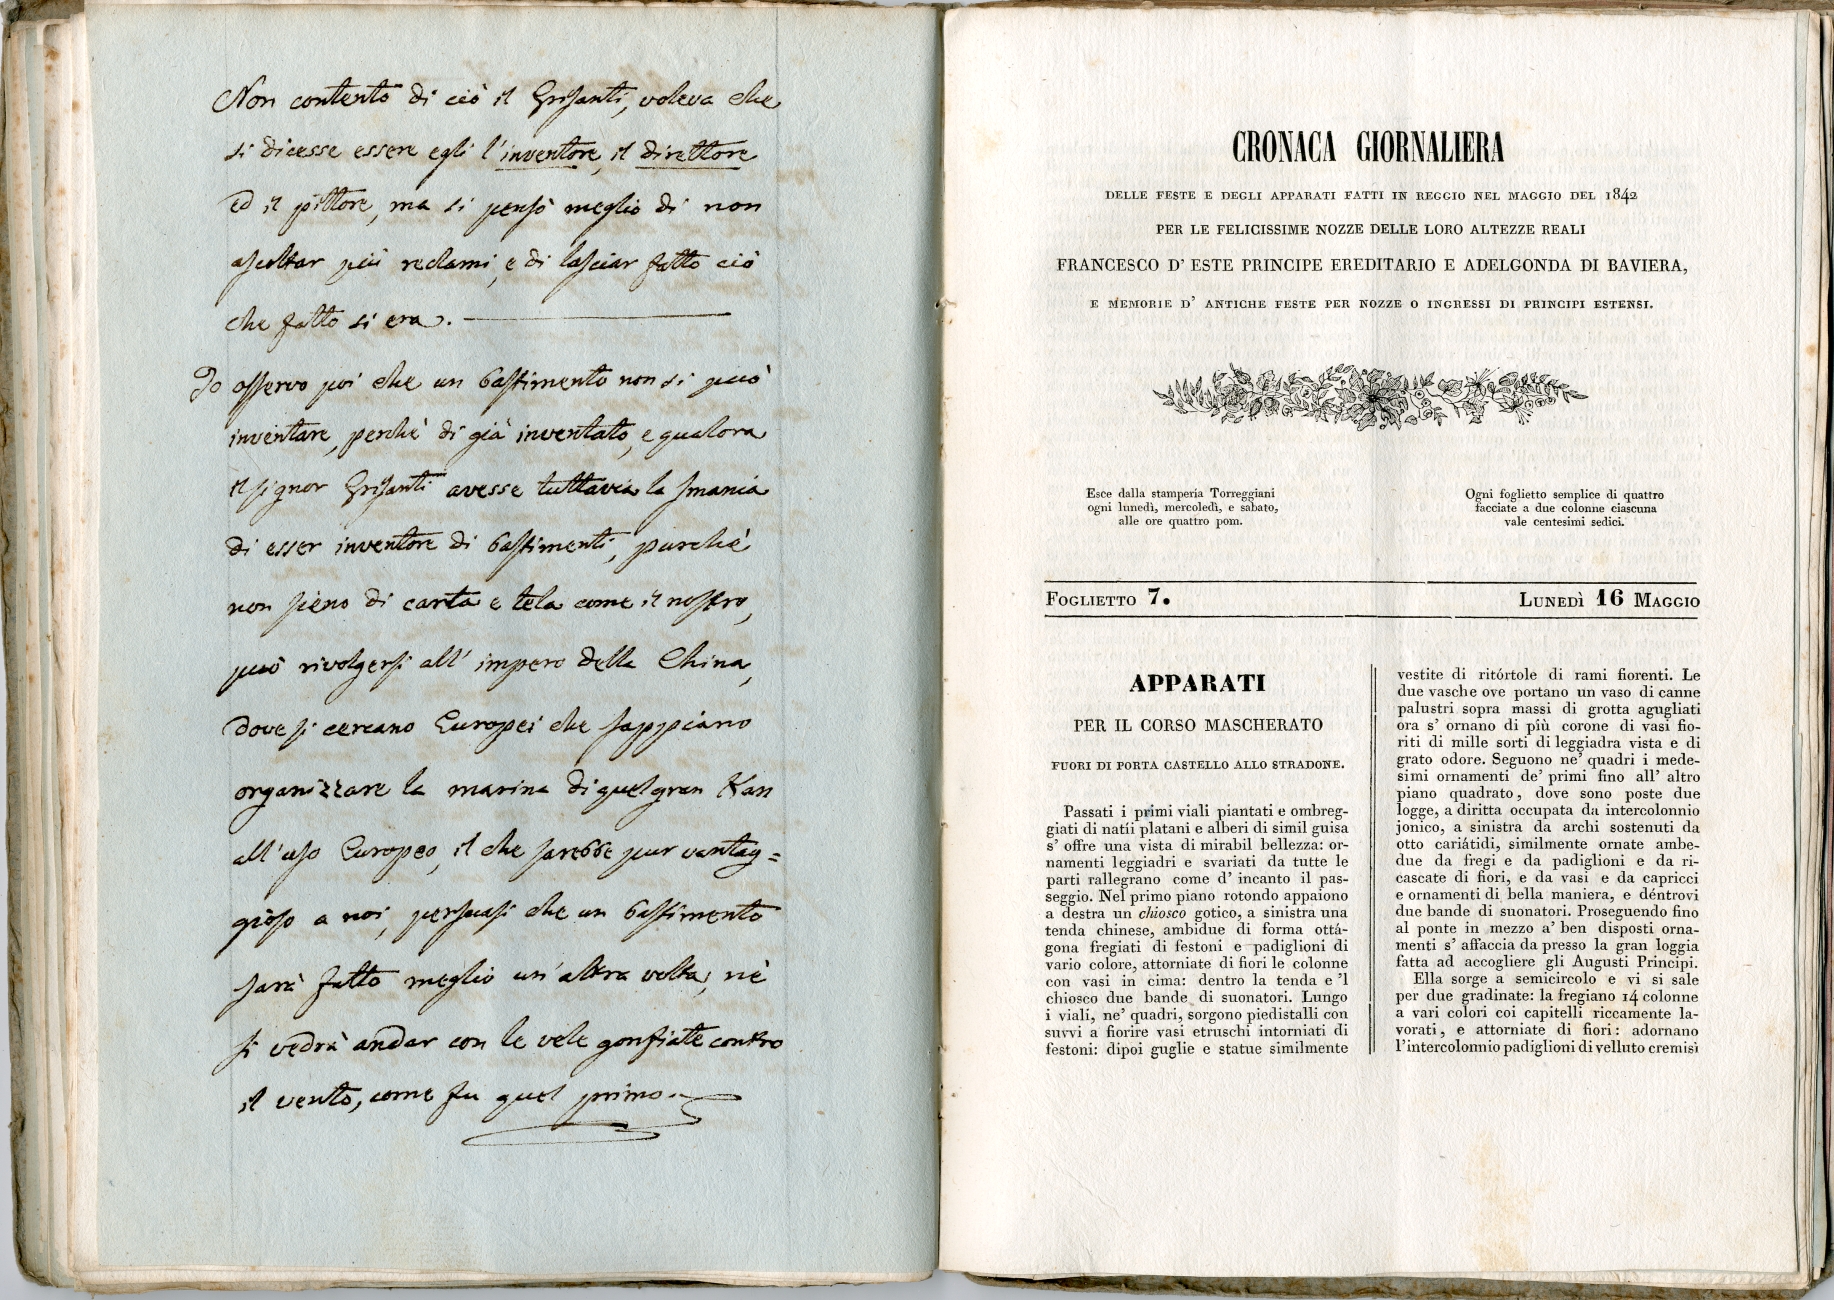 Non contento di ciò il Grisanti, voleva che
si dicesse essere egli l'inventore, il direttore
ed il pittore, ma si pensò meglio di non
ascoltar più reclami, e di lasciar fatto ciò
che fatto si era.
Io osservo poi che un bastimento non si può
inventare, perchè di già inventato, e qualora
il signor Grisanti avesse tuttavia la smania
di esser inventore di bastimenti, purchè
non sieno di carta e tela come il nostro,
può rivolgersi all' impero della China,
dove si cercano Europei che sappiano
organizzare la marina di quel gran Kan
all'uso Europeo, il che sarebbe pur vantag=
gioso a noi, persuasi che un bastimento
sarà fatto meglio un'altra volta, nè
si vedrà andar con le vele gonfiate contro
il vento, come fu quel primo.
CRONACA GIORNALIERA
DELLE FESTE E DEGLI APPARATI FATTI IN REGGIO NEL MAGGIO DEL 1842
PER LE FELICISSIME NOZZE DELLE LORO ALTEZZE REALI
FRANCESCO D' ESTE PRINCIPE EREDITARIO E ADELGONDA DI BAVIERA,
E MEMORIE D' ANTICHE FESTE PER NOZZE O INGRESSI DI PRINCIPI ESTENSI.
Esce dalla stamperia Torreggiani
ogni lunedì, mercoledì, e sabato,
alle ore quattro pom.
Ogni foglietto semplice di quattro
facciate a due colonne ciascuna
vale centesimi sedici.
FOGLIETTO 7.
LUNEDÌ 16 MAGGIO
APPARATI
PER IL CORSO MASCHERATO
FUORI DI PORTA CASTELLO ALLO STRADONE.
Passati i primi viali piantati e ombreg-
giati di natíi platani e alberi di simil guisa
s' offre una vista di mirabil bellezza: or-
namenti leggiadri e svariati da tutte le
parti rallegrano come d' incanto il pas-
seggio. Nel primo piano rotondo appaiono
a destra un chiosco gotico, a sinistra una
tenda chinese, ambidue di forma ottá-
gona fregiati di festoni e padiglioni di
vario colore, attorniate di fiori le colonne
con vasi in cima: dentro la tenda e 'l
chiosco due bande di suonatori. Lungo
i viali, ne' quadri, sorgono piedistalli con
survi a fiorire vasi etruschi intorniati di
festoni: dipoi guglie e statue similmente
vestite di ritórtole di rami fiorenti. Le
due vasche ove portano un vaso di canne
palustri sopra massi di grotta agugliati
ora s' ornano di più corone di vasi fio-
riti di mille sorti di leggiadra vista e di
grato odore. Seguono ne' quadri i mede-
simi ornamenti de' primi fino all' altro
piano quadrato, dove sono poste due
logge, a diritta occupata da intercolonnio
jonico, a sinistra da archi sostenuti da
otto cariátidi, similmente ornate ambe-
due da fregi e da padiglioni e da ri-
cascate di fiori, e da vasi e da capricci
e ornamenti di bella maniera, e déntrovi
due bande di suonatori. Proseguendo fino
al ponte in mezzo a' ben disposti orna-
menti s' affaccia da presso la gran loggia
fatta ad accogliere gli Augusti Principi.
Ella sorge a semicircolo e vi si sale
per due gradinate: la fregiano 14 colonne
a vari colori coi capitelli riccamente la-
vorati, e attorniate di fiori: adornano
l'intercolonnio padiglioni di velluto cremisi